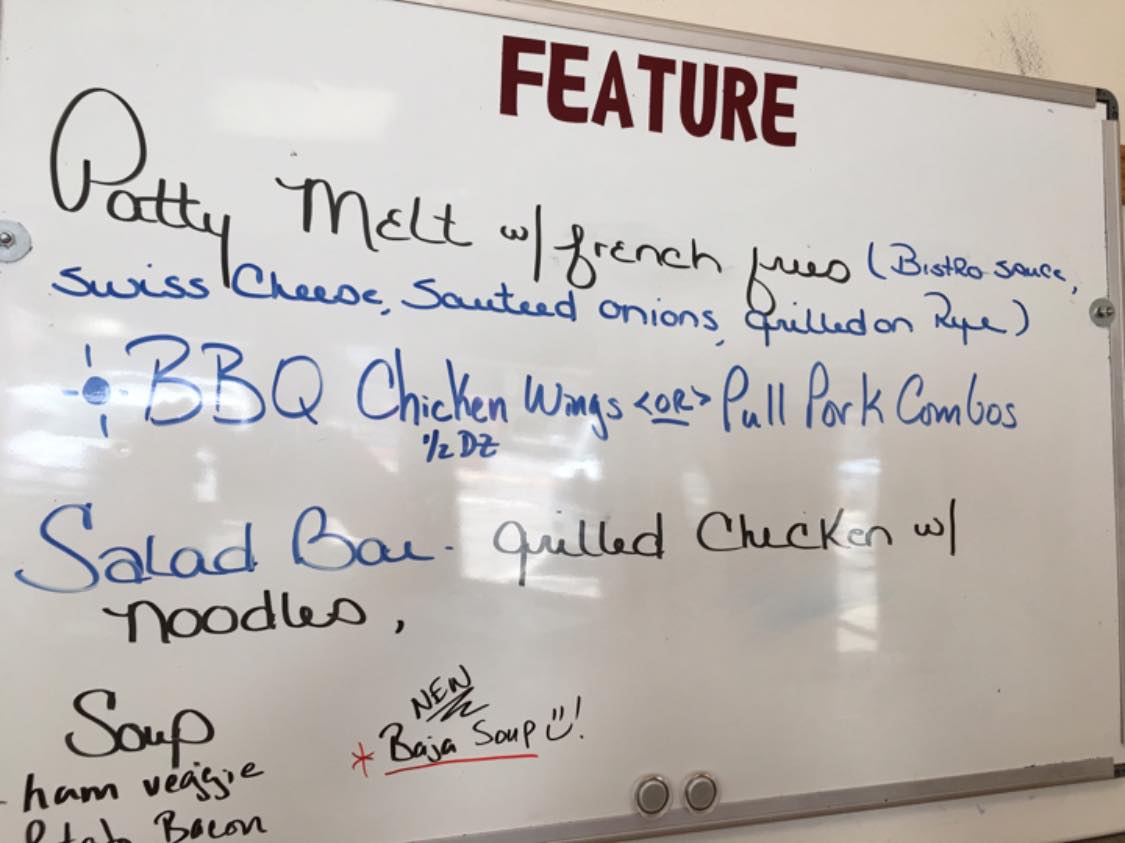 FEATURE
Patty Melt w/ french fries (Bistro sauce,
Swiss Cheese, Sauteed onions, grilled on Rye)
BBQ Chicken Wings <OR> Pull Pork Combos
1/2 DZ
Salad Bar - grilled Chicken w/
noodles,
Soup
NEW
* Baja Soup !
- ham veggie
Potato Bacon